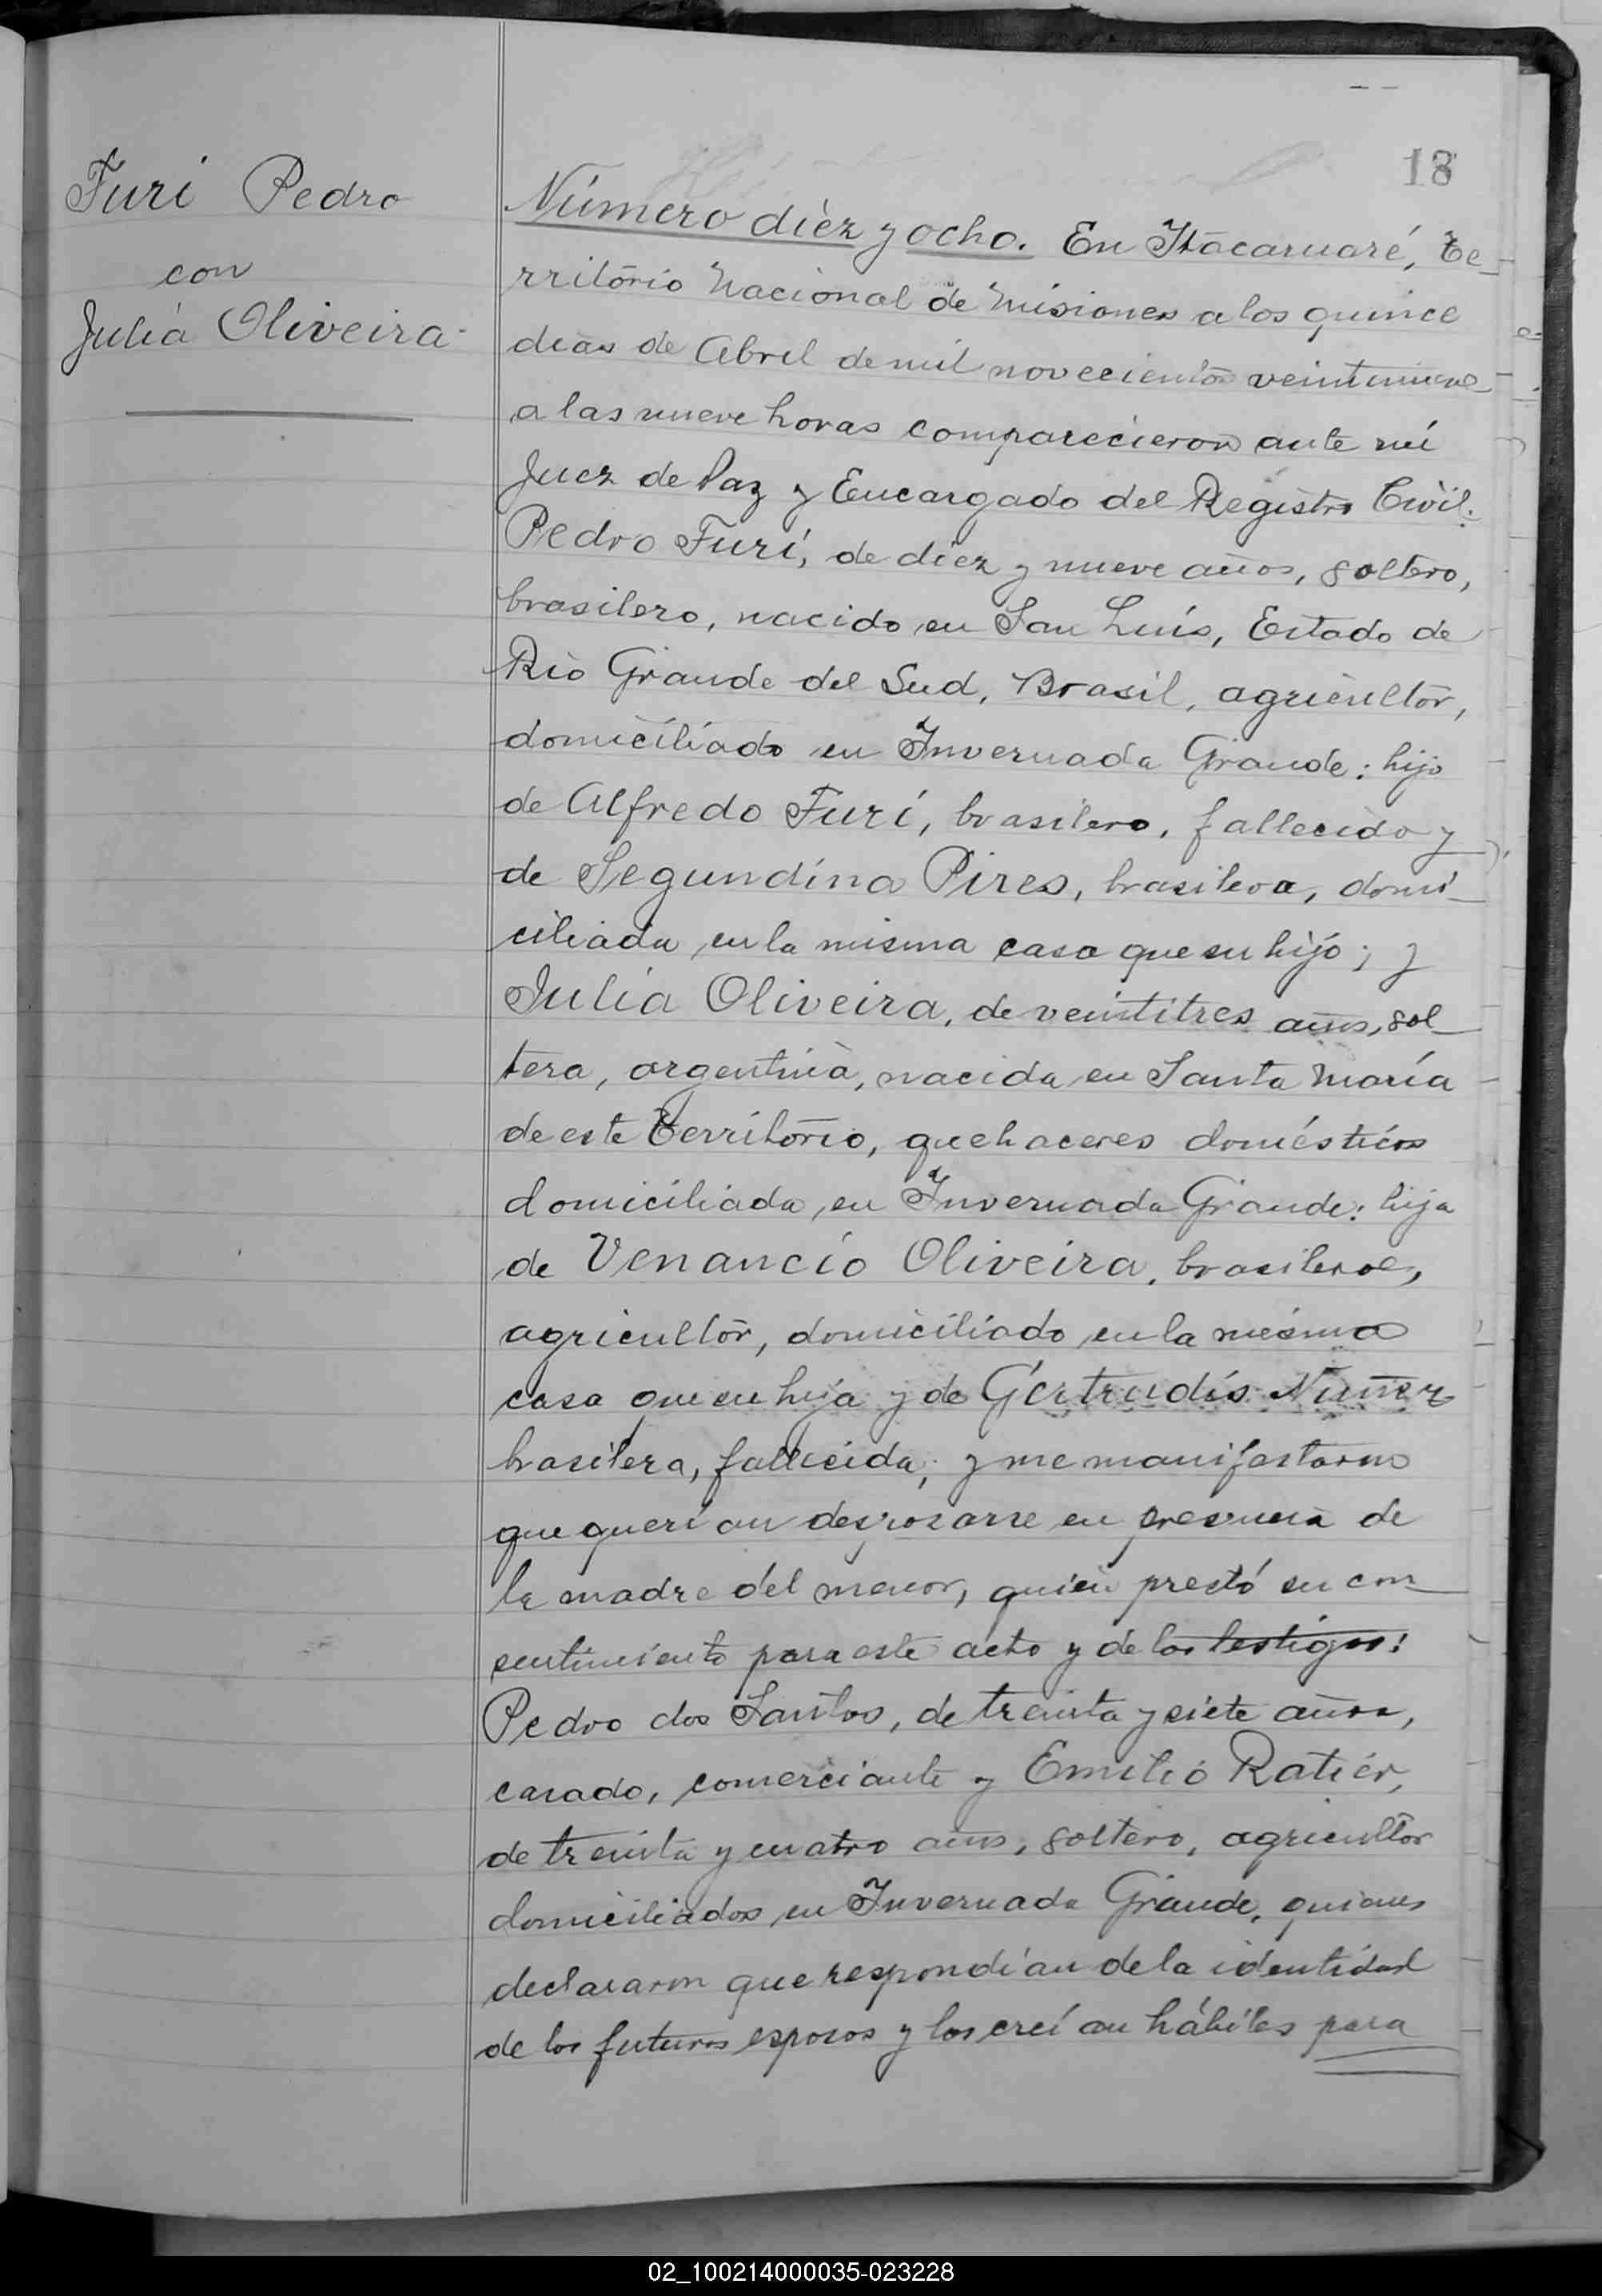 18
Furi Pedro
con
Julia Oliveira
Número diez y ocho. En Itacaruaré, te-
rritorio Nacional de Misiones a los quince
dias de Abril de mil novecientos veintinueve
a las nueve horas comparecieron ante mí
Juez de Paz y Encargado del Registro Civil:
Pedro Furí, de diez y nueve años, soltero,
brasilero, nacido en San Luís, Estado de
Rio Grande del Sud, Brasil, agricultor,
domiciliado en Invernada Grande: hijo
de Alfredo Furí, brasilero, fallecido y
de Segundina Pires, brasilera, domi-
ciliada en la misma casa que su hijo; y
Julia Oliveira, de veintitres años, sol-
tera, argentina, nacida en Santa María
de este Territorio, quehaceres domésticos
domiciliada en Invernada Grande: hija
de Venancio Oliveira, brasilero,
agricultor, domiciliado en la misma
casa que su hija y de Gertrudis Nuñez
brasilera, fallecida; y me manifestaron
que querían desposarse en presencia de
la madre del menor, quien prestó su con-
sentimiento para este acto y de los testigos:
Pedro dos Santos, de treinta y siete años,
casado, comerciante y Emilio Ratier,
de treinta y cuatro años, soltero, agricultor
domiciliados en Invernada Grande, quienes
declararon que respondían de la identidad
de los futuros esposos y los creían hábiles para
02_100214000035-023228